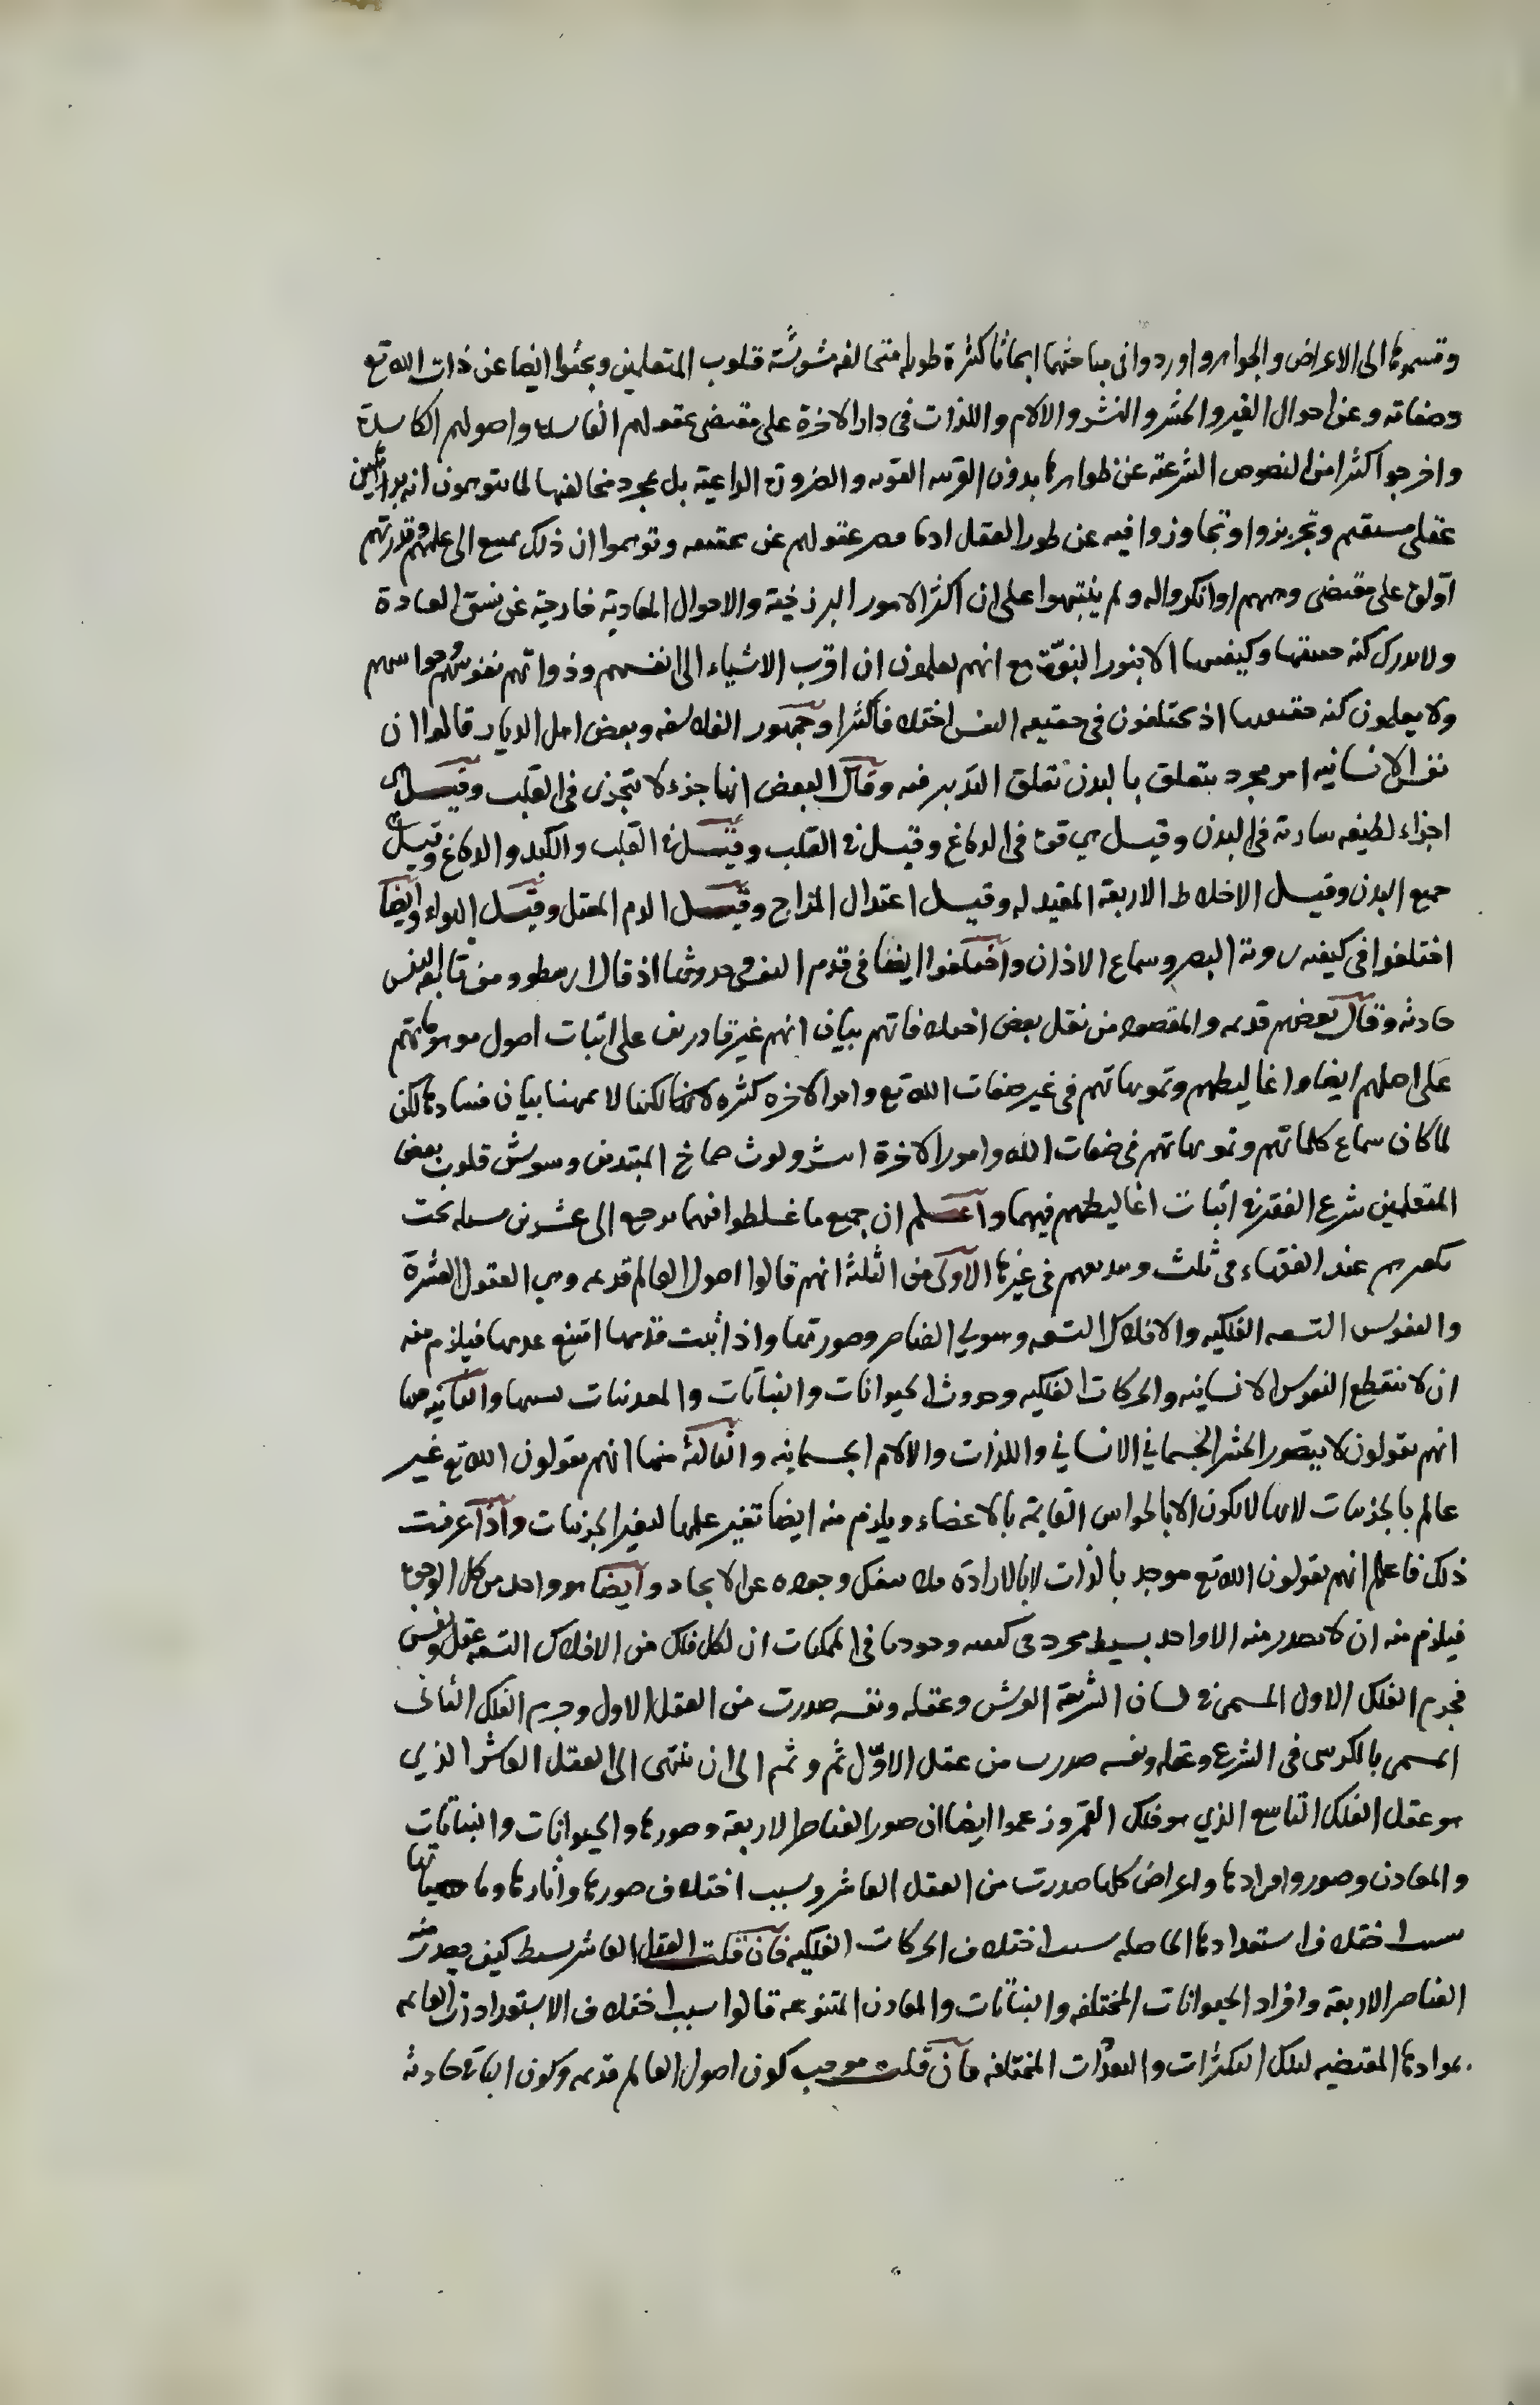 وقسموها الى الاعراض والجواهر واوردوا فى مباحثهما ابحاثا كثيرة طويله متخالفه مشوشة قلوب المتعلمين وبحثوا ايضا عن ذات الله تع
وصفاته وعن احوال القبر والحشر والنشر والالام واللذات فى دار الاخرة على مقتضى عقولهم الفاسده واصولهم الكاسدة
واخرجوا اكثرا من النصوص الشرعيه عن ظواهرها بدون القرينه القويه والضرورة الداعية بل بمجرد مخالفتها لما يتوهمون انه براهين
عقلى مستقيم وتجربزوا وتجاوزوا فيه عن طور العقل عقولهم عن وتوهموا ان ذلك الى علمهم وقدرتهم
على مقتضى وانكروا له ولم ينتبهوا على ان اكثر الامور البرزخية والاحوال المعادية خارجة عن نسق العادة
ولا يدرك كنه حقيقتها وكيفيتها الا بنور النبوة مع انهم يعلمون ان اقرب الاشياء الى انفسهم وذواتهم نفوسهم وحواسهم
ولا يعلمون كنه حقيقتها اذ يختلفون فى حقيقه النفس اختلافا كثيرا وجمهور الفلاسفه وبعض اهل الديار قالوا ان
نفس الانسانيه امر مجرد يتعلق بالبدن تعلق التدبير فيه وقال البعض انها جزء لا يتجزى فى القلب وقيل هى
اجزاء لطيفه سارية فى البدن وقيل هي قوة فى الدماغ وقيل فى القلب وقيل فى القلب والكبد والدماغ وقيل هى
جميع البدن وقيل الاخلاط الاربعة المقيد له وقيل اعتدال المزاج وقيل الدم المعتدل وقيل الهواء وايضا
اختلفوا فى كيفيه روية البصر وسماع الاذان واختلفوا ايضا فى قدم النفس وحدوثها اذ قال ارسطو ومن تابعه النفس
حادثه وقال بعضهم قديمه والمقصود من نقل بعض اختلافاتهم بيان انهم غير قادرين على اثبات اصول موهوماتهم
على اصلهم ايضا واغاليطهم وتمويهاتهم فى غير صفات الله تع وامور الاخره كثيره لكننا لا يهمنا بيان فسادها لكن
لما كان سماع كلماتهم وتمويهاتهم فى صفات الله وامور الاخرة اشد ولوث صماخ المبتدين وشوش قلوب بعض
المتعلمين شرع الفقير فى اثبات اغاليطهم فيهما واعلم ان جميع ما غلطوا فيهما يرجع الى عشرين مسله تحت
تكفيرهم عند الفقهاء فى ثلث وتبديعهم فى غيرها الاولى من الثلثة انهم قالوا اصول العالم قديمه وهي العقول العشرة
والنفوس التسعه الفلكيه والافلاك التسعه وهيولي العناصر وصورتها واذا ثبت قدمها امتنع عدمها فيلزم منه
ان لا ينقطع النفوس الانسانيه والحركات الفلكيه وحدوث الحيوانات والنباتات والمعدنيات والثانيه منها
انهم يقولون لا يتصور الحشر الجسماني الانساني واللذات والالام الجسمانيه والثالثة منها انهم يقولون الله تع غير
عالم بالجزئيات لانها لا يكون الا بالحواس القايمة بالاعضاء ويلزم منه ايضا تغير علمها لتغير الجزئيات واذا عرفت
ذلك فاعلم انهم يقولون الله تع موجد بالذات لا بالارادة فلا ينفك وجوده عن الايجاد وايضا هو واحد من كل الوجوه
فيلزم منه ان لا يصدر منه الا واحد بسيط مجرد وجودها فى الممكنات ان لكل فلك من الافلاك التسعه عقل ونفس
فجرم الفلك الاول المسمى فى لسان الشريعة العرش وعقله ونفسه صدرت من العقل الاول وجرم الفلك الثانى
المسمى بالكرسى فى الشرع وعقله ونفسه صدرت من عقل الاول ثم وثم الى ان ينتهى الى العقل العاشر الذي
هو عقل الفلك التاسع الذي هو فلك القمر وزعموا ايضا ان صور العناصر الاربعة وصورها والحيوانات والنباتات
والمعادن وصور وافرادها واعراض كلها صدرت من العقل العاشر وسبب اختلاف صورها واثارها وماهياتها
سبب اختلاف استعدادها الحاصله بسبب اختلاف الحركات الفلكيه فان قلت العقل العاشر بسيط كيف يصدر منه
العناصر الاربعة وافراد الحيوانات المختلفه والنباتات والمعادن المتنوعه قالوا سبب اختلاف الاستعداد ذات القايمه
بموادها المقتضيه لتلك التكثرات والتعددات المختلفه فان قلت موجب كون اصول العالم قديمه وكون الباقى حادثه